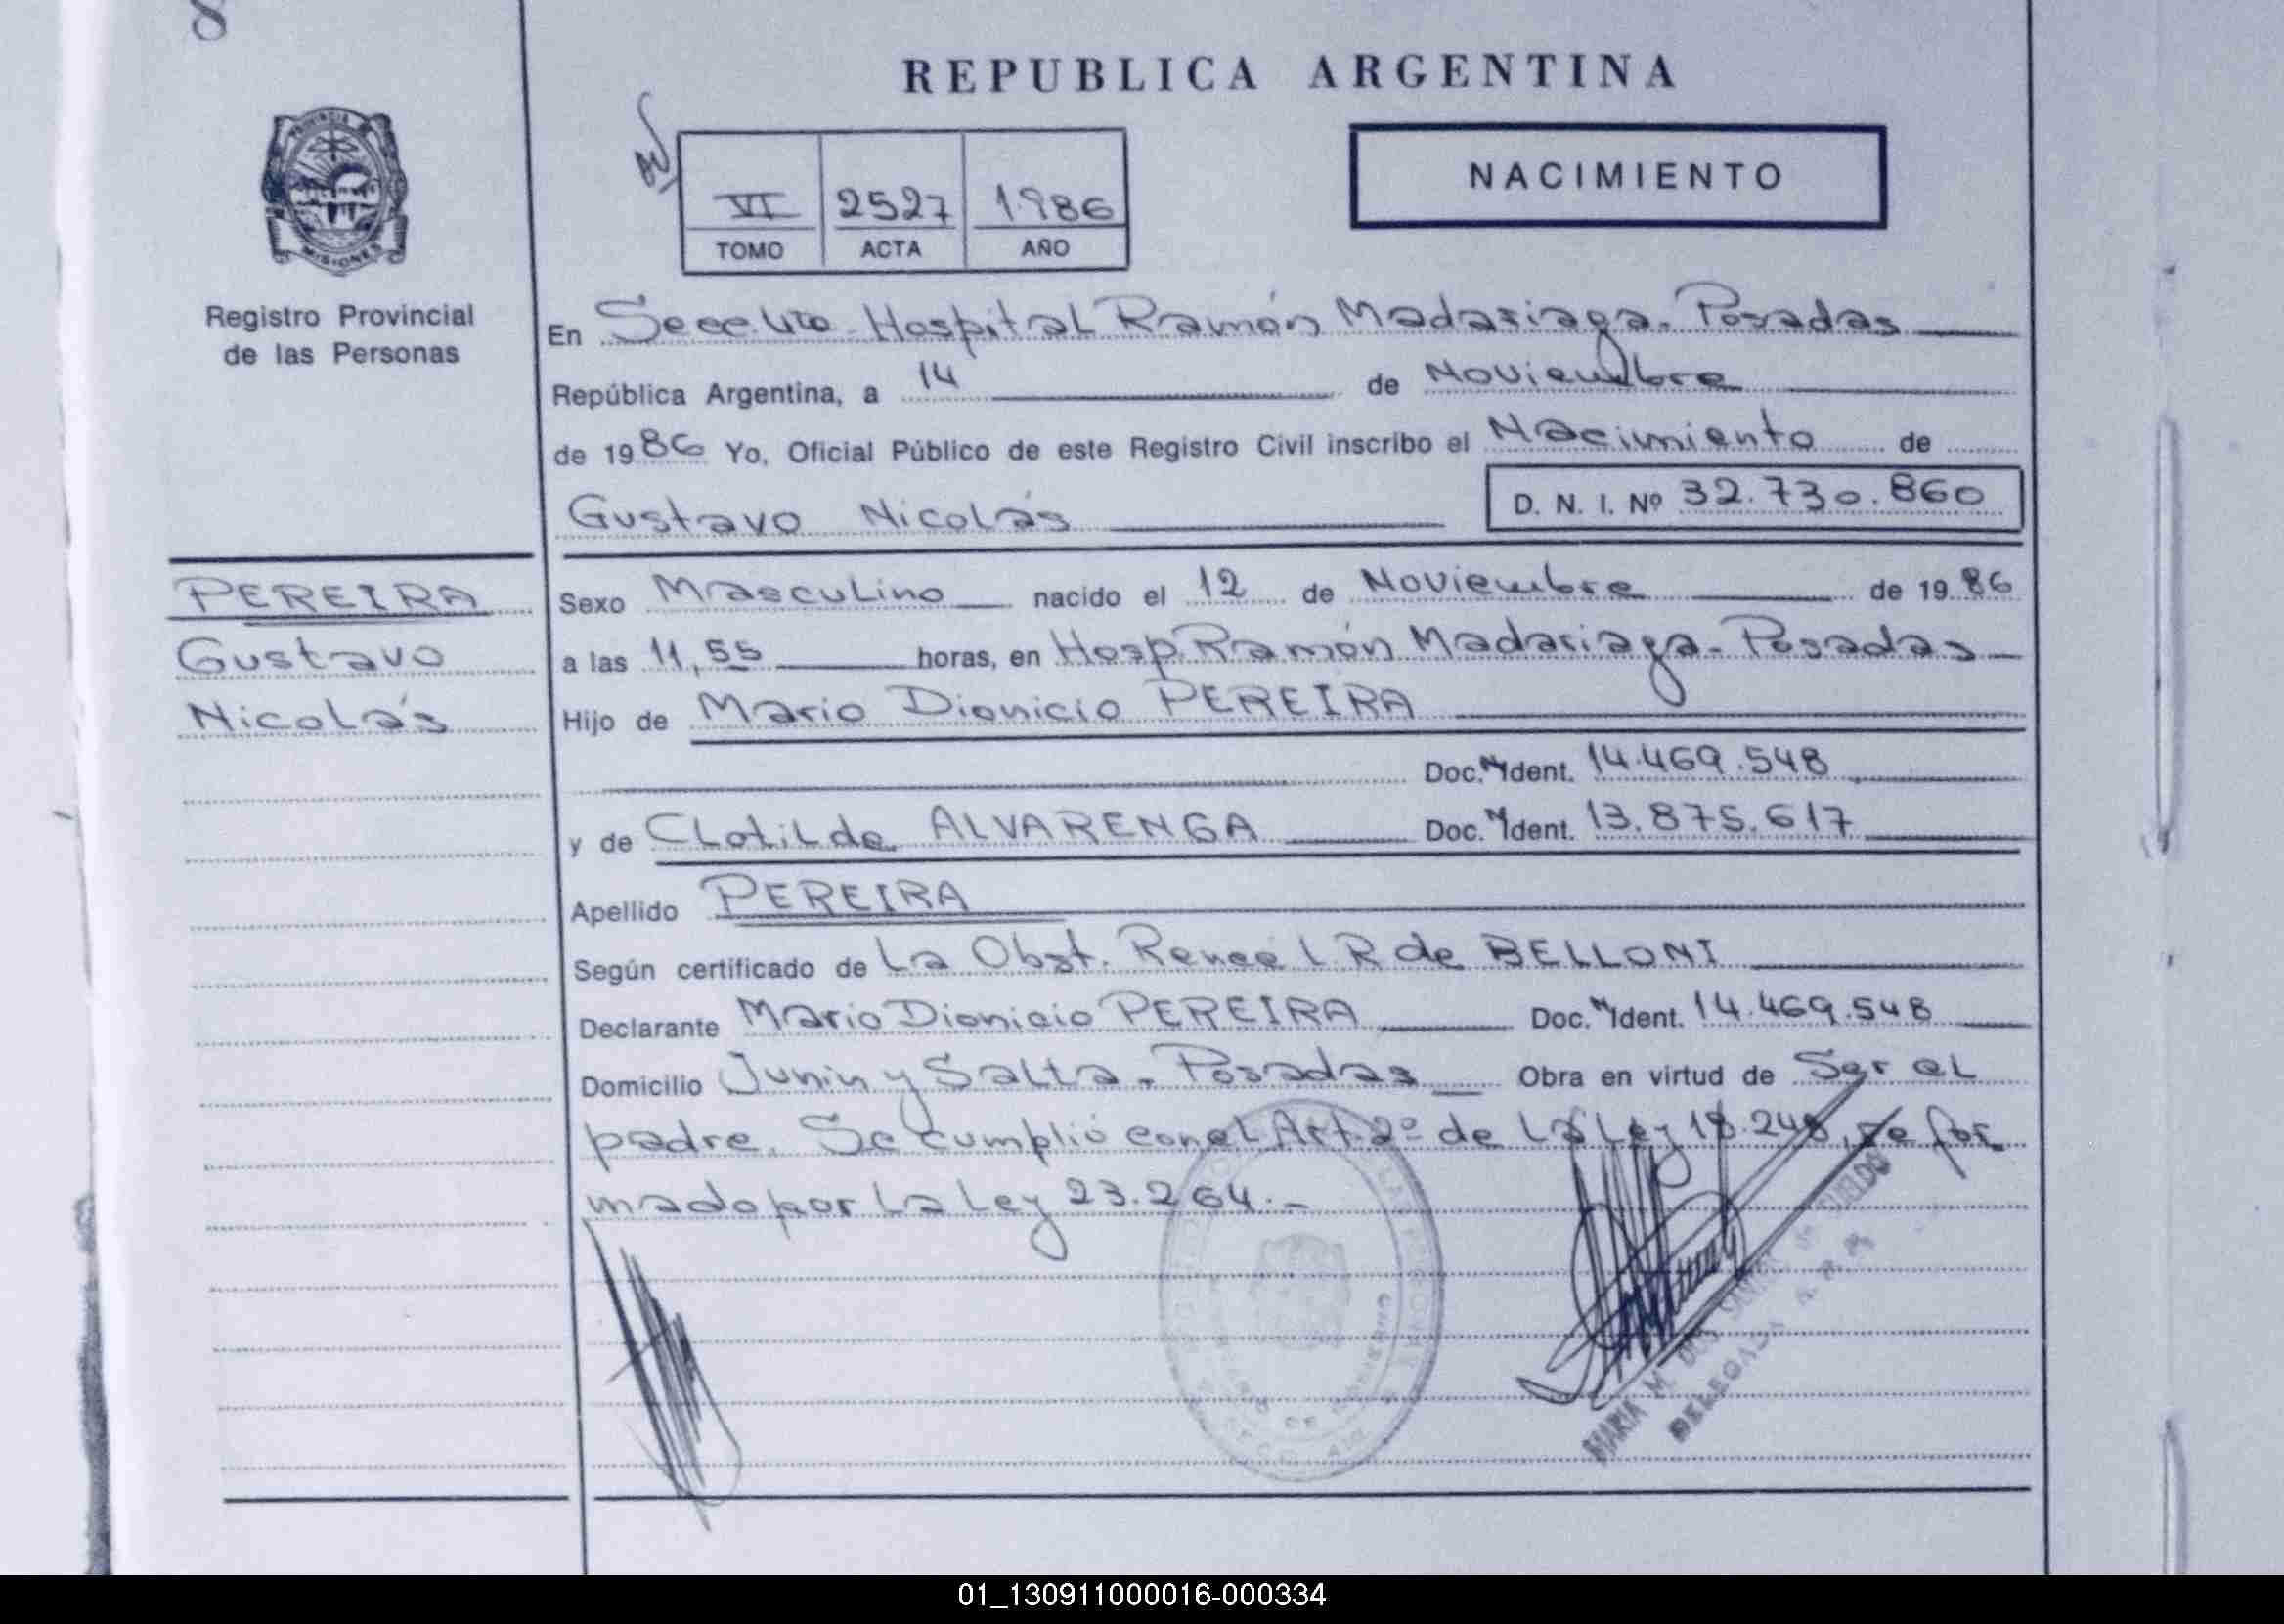 8
REPUBLICA ARGENTINA
PROVINCIA DE
MISIONES
VI 2527 1986
TOMO ACTA AÑO
NACIMIENTO
Registro Provincial
de las Personas
En Secc. Hospital Ramón Madariaga - Posadas
República Argentina, a 14 de Noviembre
de 1986 Yo, Oficial Público de este Registro Civil inscribo el Nacimiento de
Gustavo Nicolás D. N. I. Nº 32.730.860
PEREIRA
Gustavo
Nicolás
Sexo Masculino nacido el 12 de Noviembre de 1986
a las 11,55 horas, en Hosp. Ramón Madariaga - Posadas
Hijo de Mario Dionicio PEREIRA
Doc. N Ident. 14.469.548
y de Clotilde ALVARENGA Doc. N Ident. 13.875.617
Apellido PEREIRA
Según certificado de La Obst. Reneé L R de BELLONI
Declarante Mario Dionicio PEREIRA Doc. N Ident. 14.469.548
Domicilio Junin y Salta - Posadas Obra en virtud de Ser el
padre. Se cumplió con el Art. 2º de La Ley 18.248, re for
mado por La Ley 23.264.-
MARIA M. DOS
DELEGADA
01_130911000016-000334